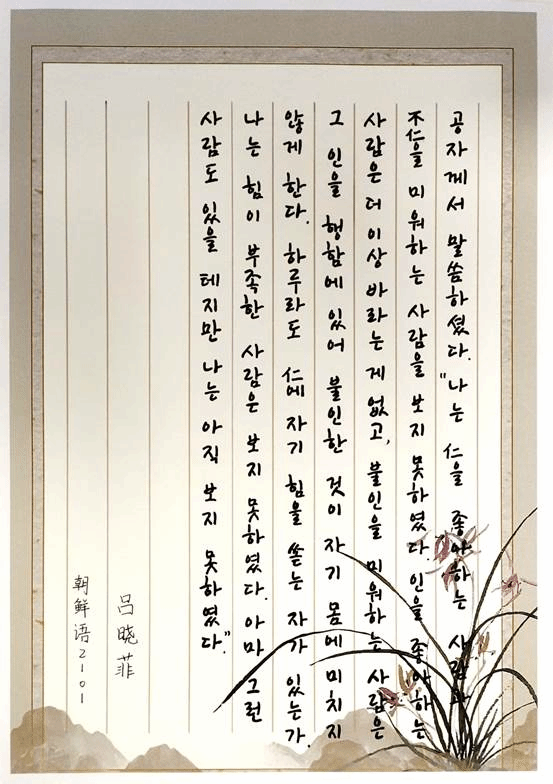 공자께서 말씀하셨다. "나는 仁을 좋아하는 사람과
不仁을 미워하는 사람을 보지 못하였다. 인을 좋아하는
사람은 더 이상 바라는 게 없고, 불인을 미워하는 사람은
그 인을 행함에 있어 불인한 것이 자기 몸에 미치지
않게 한다. 하루라도 仁에 자기 힘을 쏟는 자가 있는가.
나는 힘이 부족한 사람은 보지 못하였다. 아마 그런
사람도 있을 테지만 나는 아직 보지 못하였다."
吕晓菲
朝鲜语2101